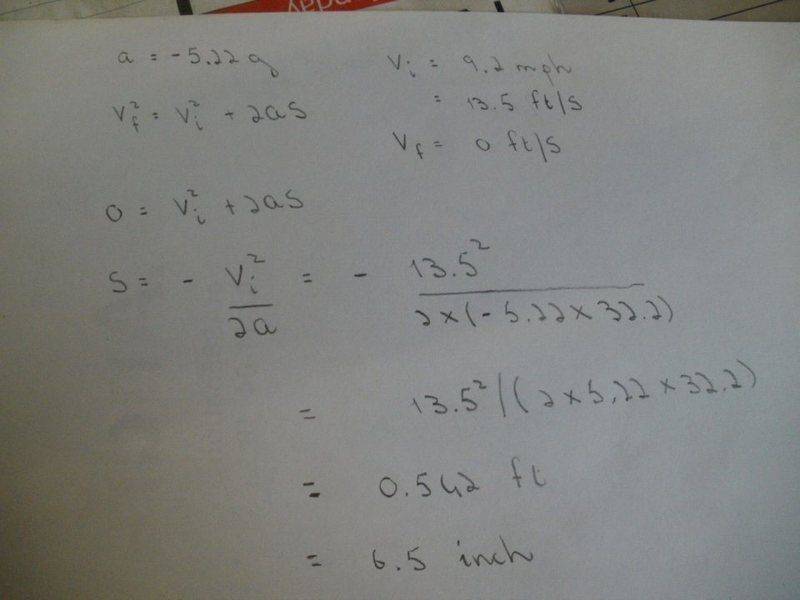 a = -5.22 g
V_i = 9.2 mph
= 13.5 ft/s
V_f^2 = V_i^2 + 2as
V_f = 0 ft/s
0 = V_i^2 + 2as
s = - V_i^2 / 2a = - 13.5^2 / 2×(-5.22×32.2)
= 13.5^2/(2×5,22×32.2)
= 0.542 ft
= 6.5 inch